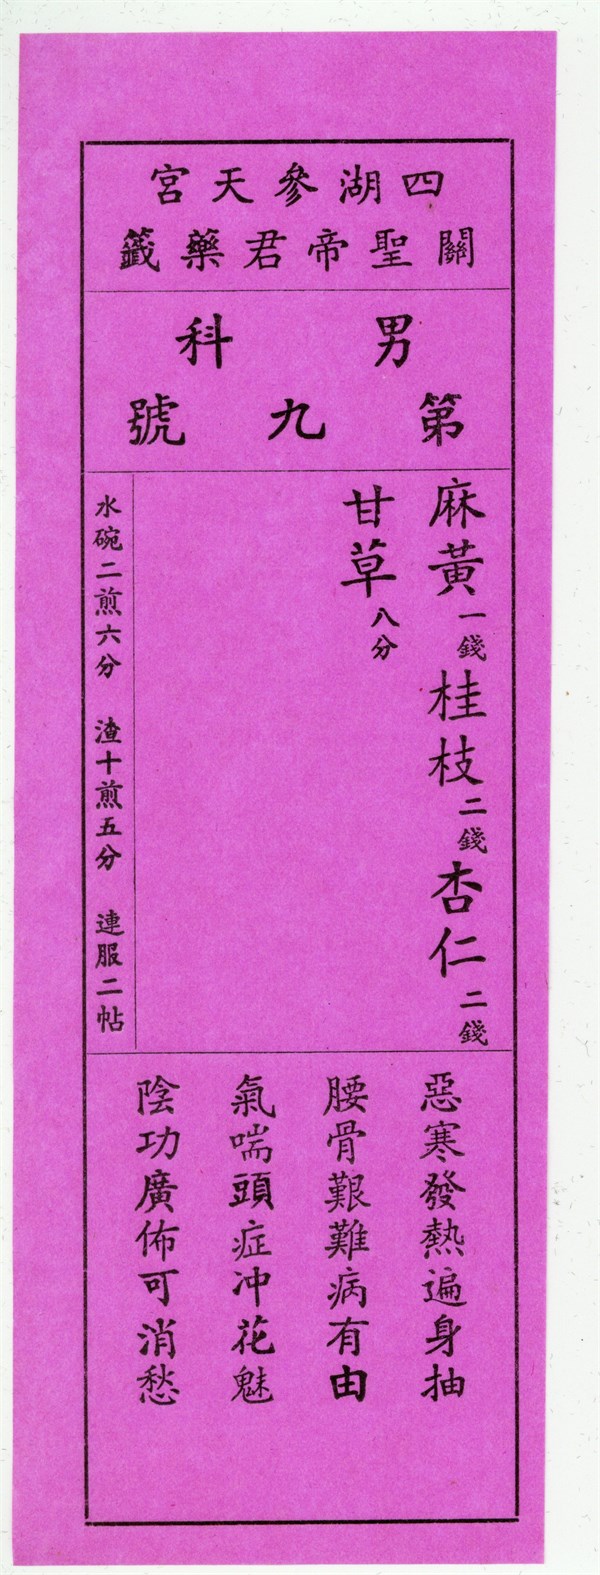 四湖參天宮
關聖帝君藥籤
男科
第九號
麻黃一錢桂枝二錢杏仁二錢
甘草八分
水碗二煎六分 渣十煎五分 連服二帖
惡寒發熱遍身抽
腰骨艱難病有由
氣喘頭症冲花魅
陰功廣佈可消愁